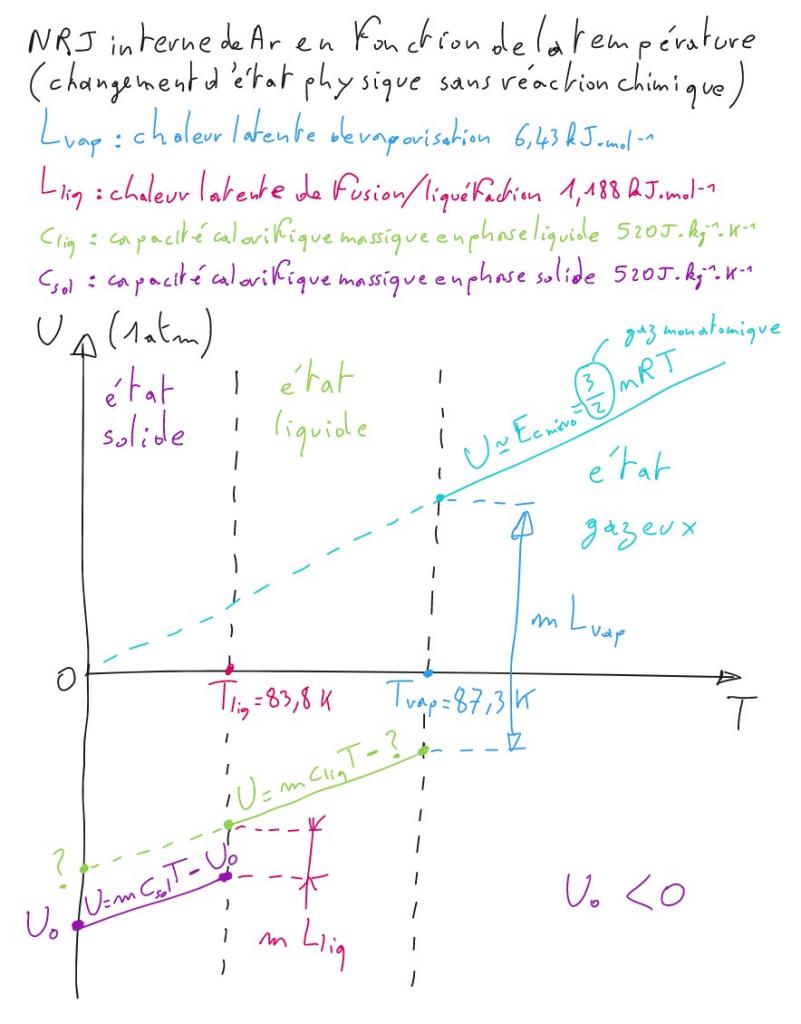 NRJ interne de Ar en fonction de la température
(changement d'état physique sans réaction chimique)
Lvap : chaleur latente de vaporisation 6,43 kJ.mol⁻¹
Lliq : chaleur latente de fusion/liquéfaction 1,188 kJ.mol⁻¹
Cliq : capacité calorifique massique en phase liquide 520 J.kg⁻¹.K⁻¹
Csol : capacité calorifique massique en phase solide 520 J.kg⁻¹.K⁻¹
U (1 atm)
gaz monatomique
état solide
état liquide
U ≃ Ecmicro = 3/2 nRT
état gazeux
m Lvap
0
Tliq = 83,8 K
Tvap = 87,3 K
T
U = m Cliq T - ?
?
U = m Csol T - U₀
U₀
m Lliq
U₀ < 0